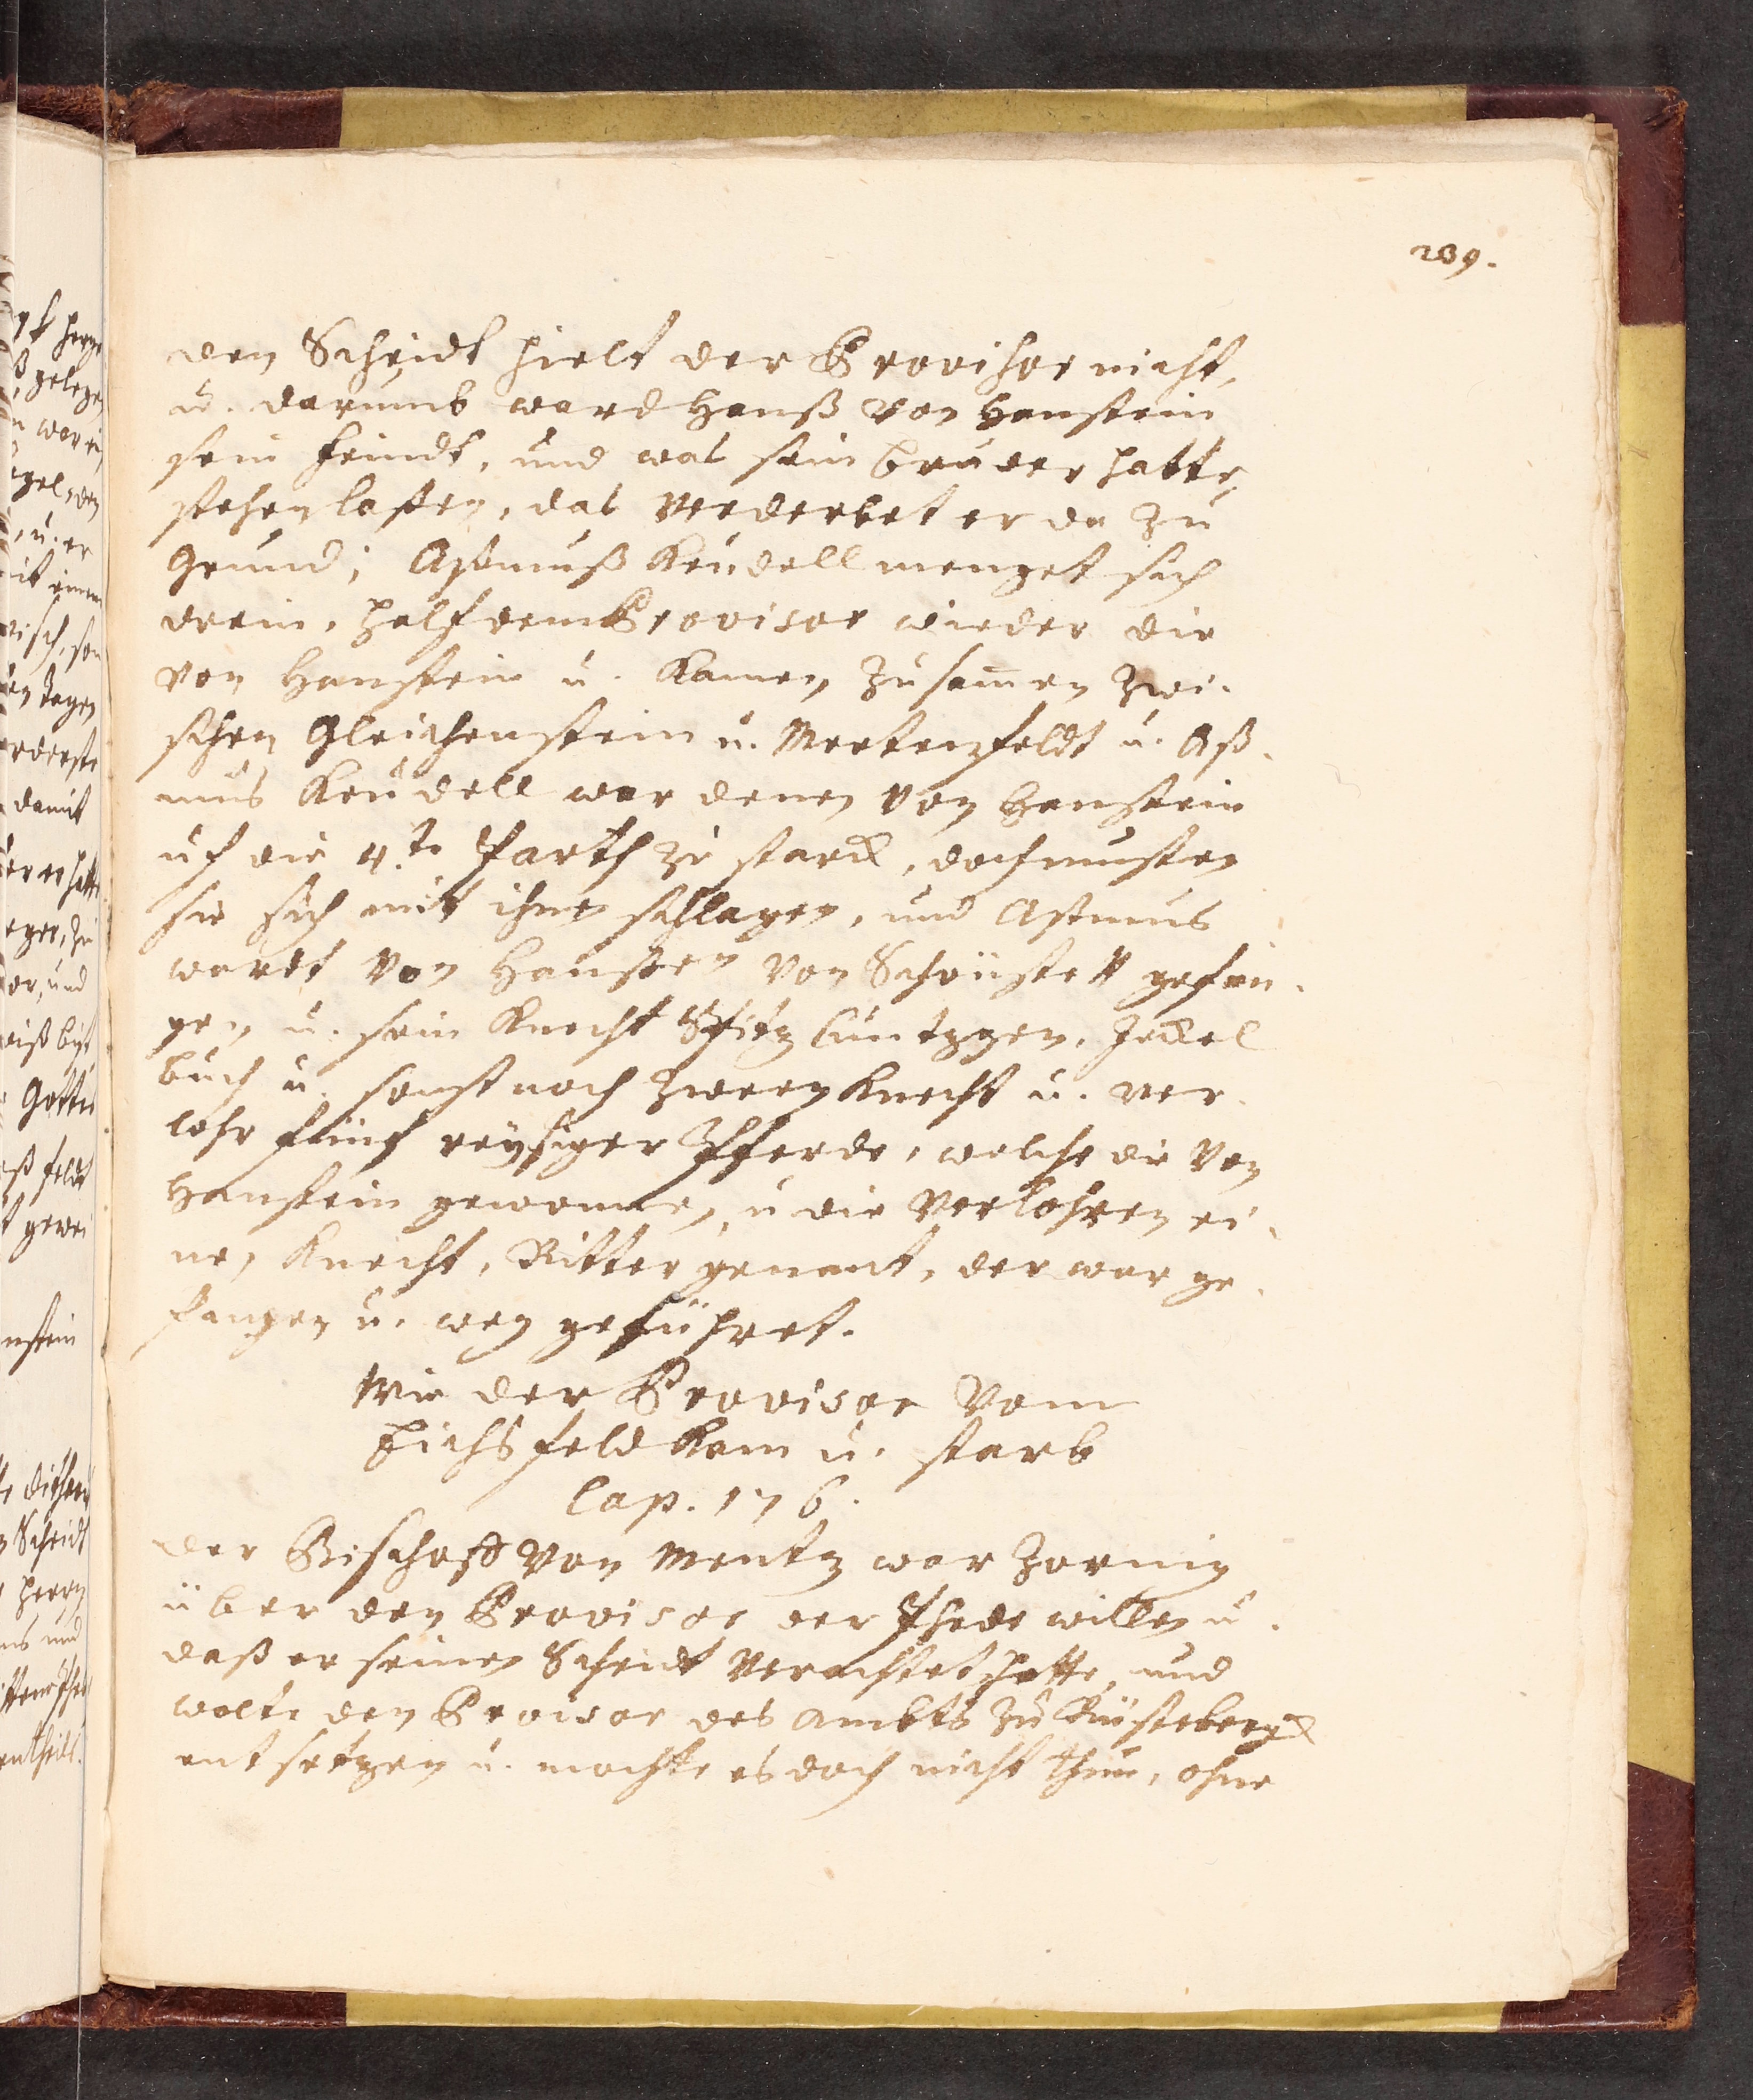 239.
den Scheidt hielt der Provisor nicht,
u. darumb ward Hanß von Hanstein
sein feindt, und wat sein bruder hatte
stehen laßen, dat verderbet er da zu
Grund; Aßmuß Keudell menget sich
drein, halff dem Provisor wieder die
von Hanstein u. kamen zusam̄en zwi-
schen Gleichenstein u. Mertenfeldt u. Aß-
mus Keudell war denen von Hanstein
uf die 4.te Parth zu starck, doch musten
sie sich mit ihnen schlagen, und Aßmus
wardt von Hansten von gefan-
gen u. sein Knecht Cuntzgen, Jeckel
buch u. sonst noch zween Knecht u. ver-
lohr fünf reysiger Pferde, welche die von
Hanstein gewonnen, u die verlohren ei-
nen Knecht, Ritter genant, der war ge-
fangen u. weg geführet.
Wie der Provisor vom
Eichsfeld kam u. starb
Cap. 176.
der Bischoff von Mentz war zornig
über den Provisor der Phede willen u.
daß er seinen Scheidt verachtet hatte, und
wolte den Provisor des ambts zu Rusteberg
entsetzen u. mochte es doch nicht thun, ohne